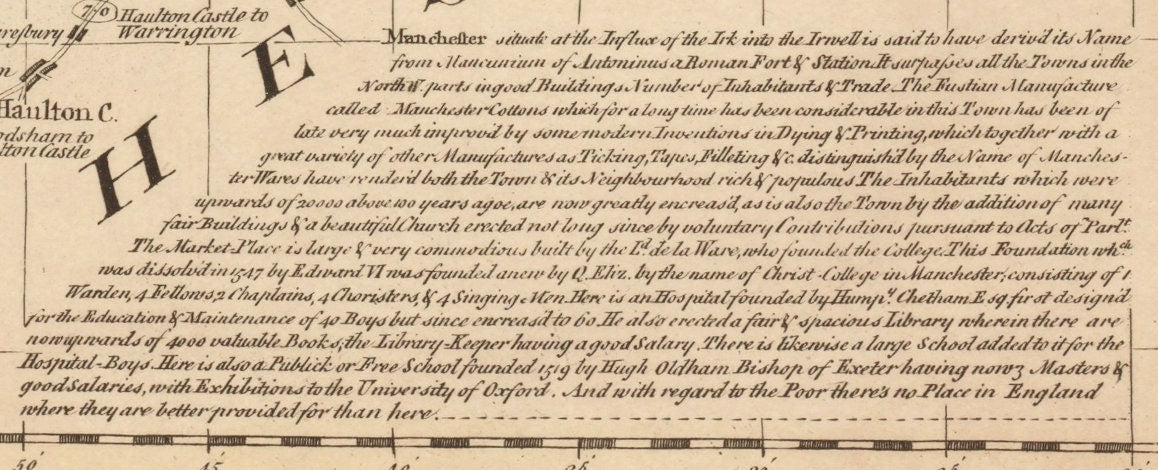 70 Haulton Castle to
Warrington
Haulton C.
to
Castle
H
E
Manchester situate at the Influx of the Irk into the Irwell is said to have deriv'd its Name
from Mancunium of Antoninus a Roman Fort & Station. It surpasses all the Towns in the
North W. parts in good Buildings Number of Inhabitants & Trade. The Fustian Manufacture
called Manchester Cottons which for a long time has been considerable in this Town has been of
late very much improv'd by some modern Inventions in Dying & Printing, which together with a
great variety of other Manufactures as Ticking, Tapes, Filleting &c. distinguish'd by the Name of Manches-
ter Wares have render'd both the Town & its Neighbourhood rich & populous The Inhabitants which were
upwards of 20000 above 100 years agoe, are now greatly encreas'd, as is also the Town by the addition of many
fair Buildings & a beautiful Church erected not long since by voluntary Contributions pursuant to Acts of Parl.t
The Market-Place is large & very commodious built by the L.d de la Ware, who founded the College. This Foundation wh.ch
was dissolv'd in 1547 by Edward VI was founded anew by Q. Eliz. by the name of Christ-College in Manchester; consisting of 1
Warden, 4 Fellows, 2 Chaplains, 4 Choristers, & 4 Singing Men. Here is an Hospital founded by Hump.y Chetham Esq. first design'd
for the Education & Maintenance of 40 Boys but since encreas'd to 60 He also erected a fair & spacious Library wherein there are
now upwards of 4000 valuable Books, the Library-Keeper having a good Salary. There is likewise a large School added to it for the
Hospital-Boys. Here is also a Publick or Free School founded 1519 by Hugh Oldham Bishop of Exeter having now 3 Masters &
good Salaries, with Exhibitions to the University of Oxford. And with regard to the Poor there's no Place in England
where they are better provided for than here.